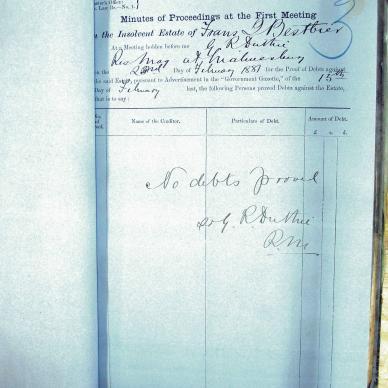 ster's Office:
Law Ds.—No. 1.
3
Minutes of Proceedings at the First Meeting
in the Insolvent Estate of Frans J Bestbier
At a Meeting holden before me G R Duthie
Res Mag at Malmesbury
on the 22nd Day of February 1881 for the Proof of Debts against
the said Estate, pursuant to Advertisement in the "Government Gazette," of the 15th
Day of February last, the following Persons proved Debts against the Estate,
that is to say:
Name of the Creditor. Particulars of Debt. Amount of Debt.
£ s. d.
No debts proved
G. R Duthie
R M